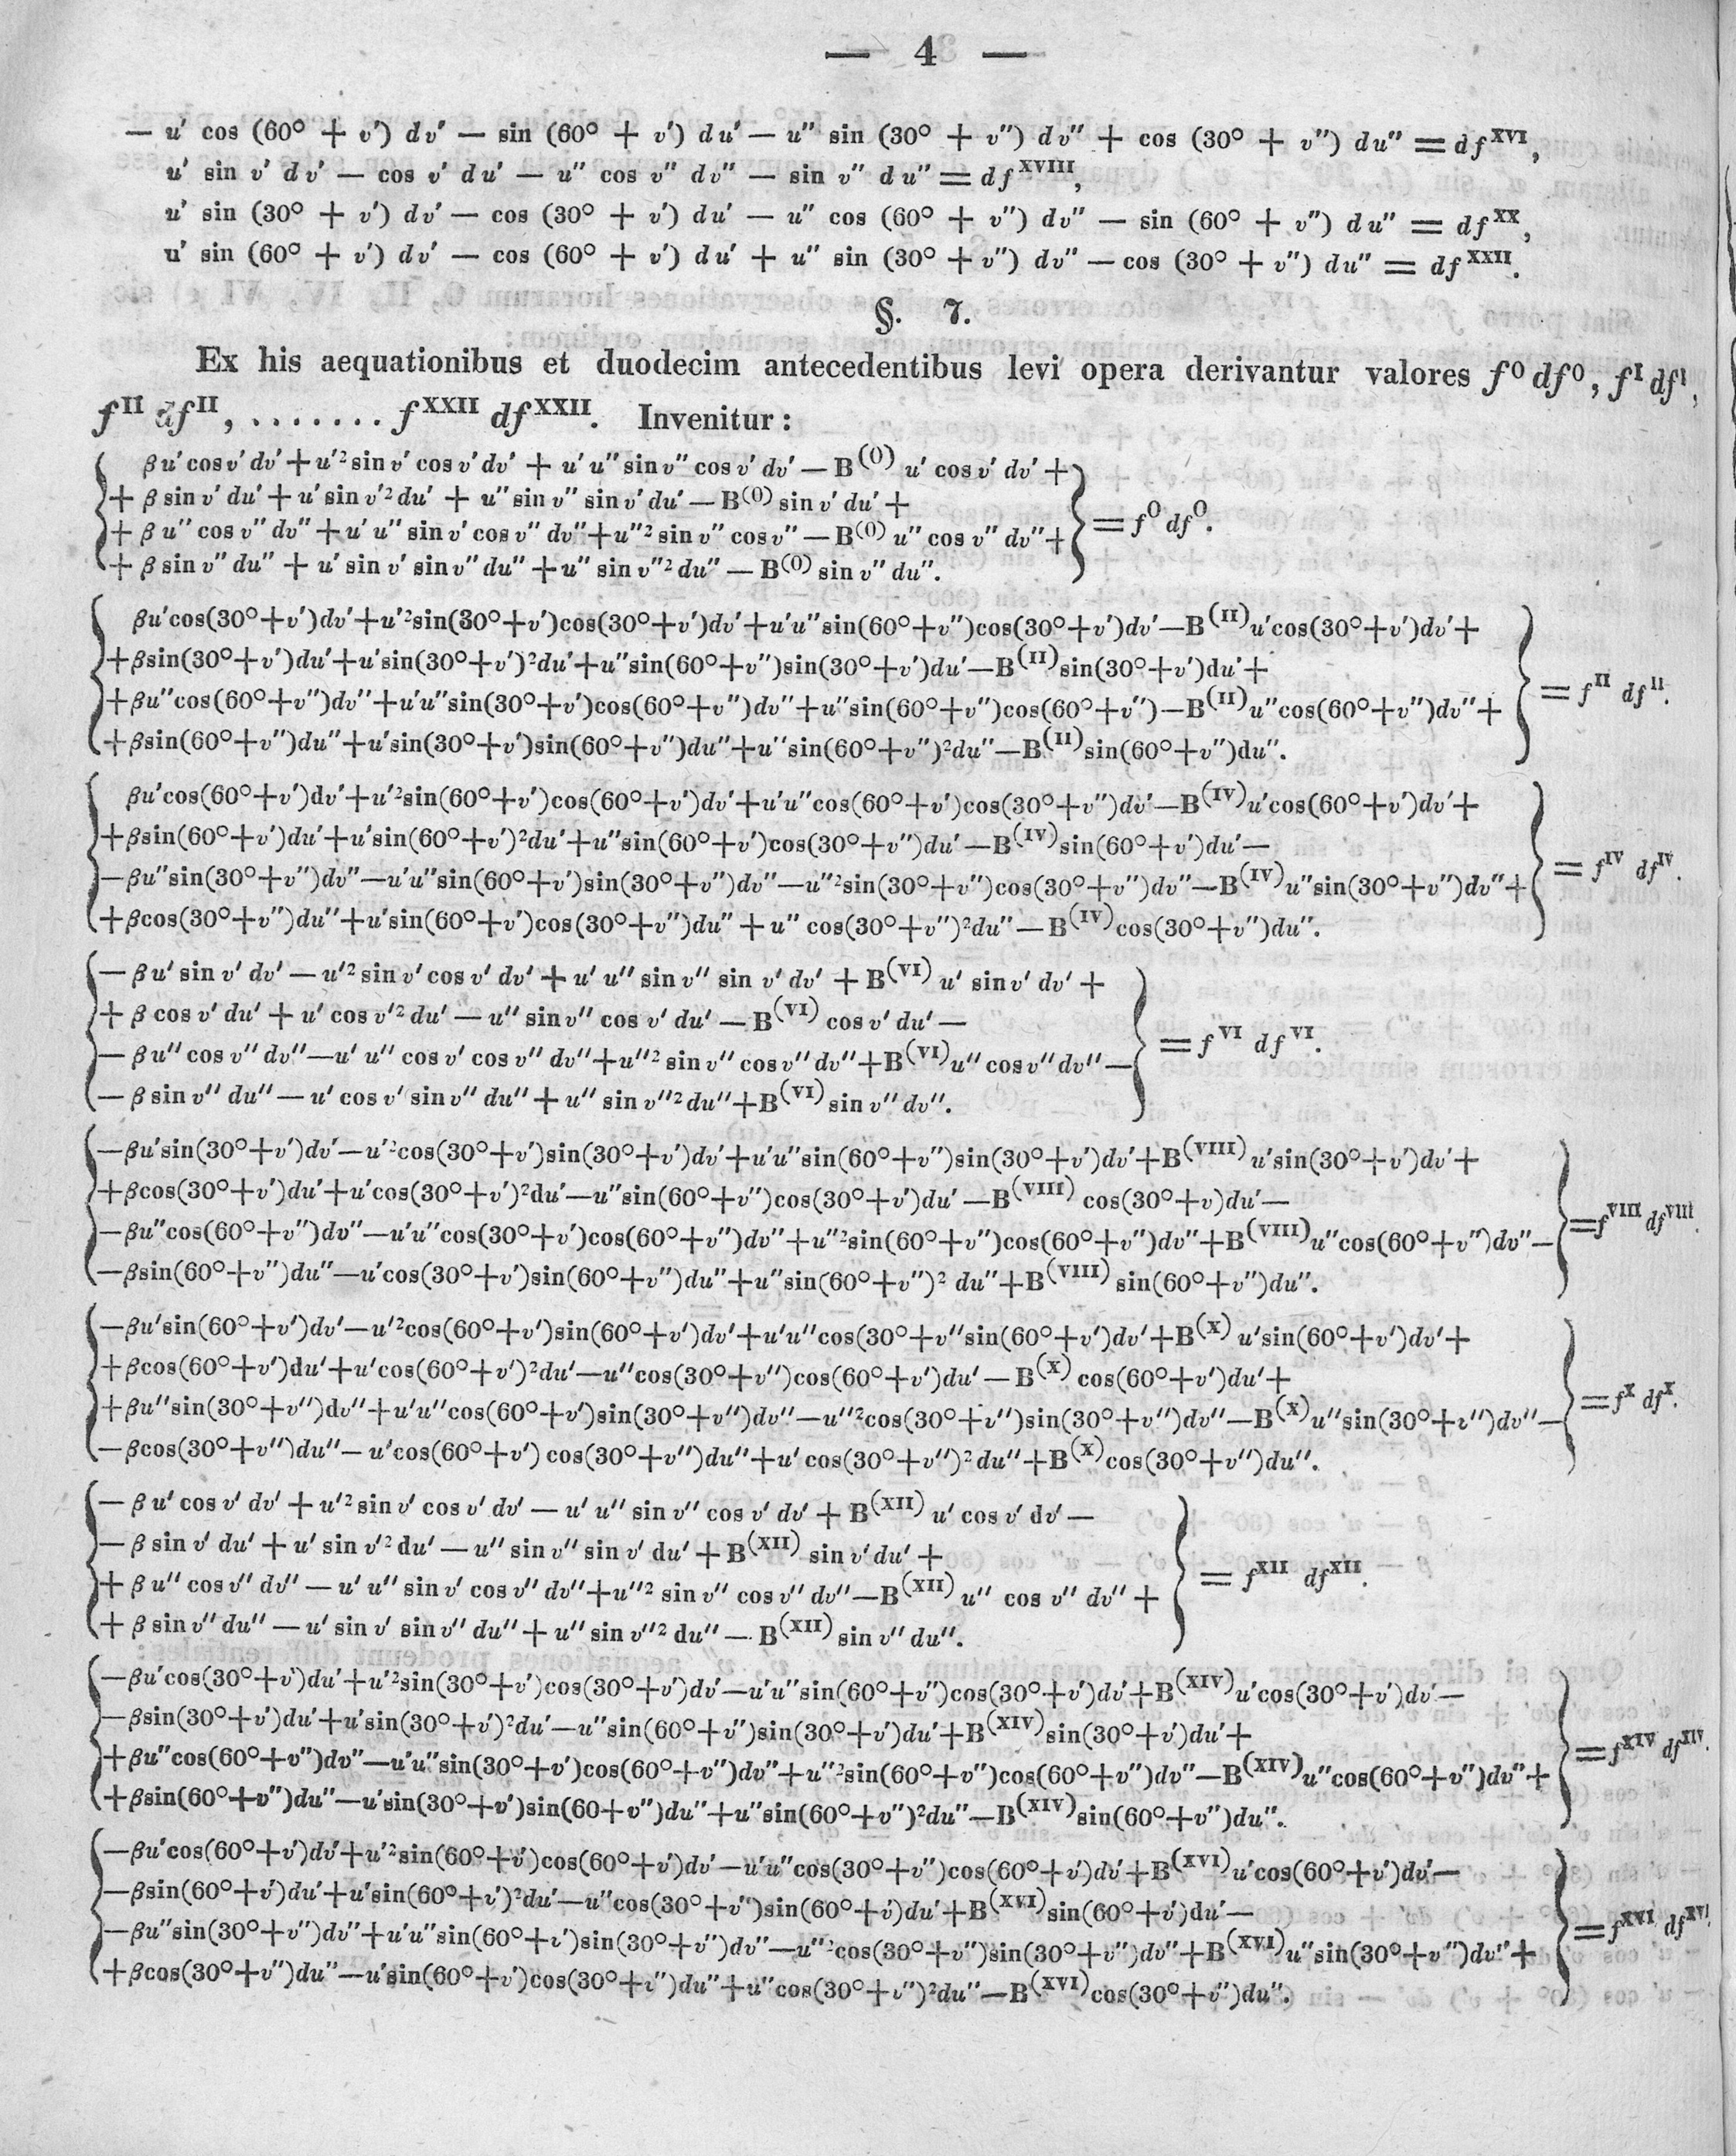 — 4 —
— u′ cos (60° + v′) dv′ — sin (60° + v′) du′ — u″ sin (30° + v″) dv″ + cos (30° + v″) du″ = df^XVI,
u′ sin v′ dv′ — cos v′ du′ — u″ cos v″ dv″ — sin v″ du″ = df^XVIII,
u′ sin (30° + v′) dv′ — cos (30° + v′) du′ — u″ cos (60° + v″) dv″ — sin (60° + v″) du″ = df^XX,
u′ sin (60° + v′) dv′ — cos (60° + v′) du′ + u″ sin (30° + v″) dv″ — cos (30° + v″) du″ = df^XXII.
§. 7.
Ex his aequationibus et duodecim antecedentibus levi opera derivantur valores f^0 df^0, f^I df^I,
f^II df^II, ....... f^XXII df^XXII. Invenitur:
βu′ cos v′ dv′ + u′² sin v′ cos v′ dv′ + u′ u″ sin v″ cos v′ dv′ — B^(0) u′ cos v′ dv′ +
+ β sin v′ du′ + u′ sin v′² du′ + u″ sin v″ sin v′ du′ — B^(0) sin v′ du′ +
+ β u″ cos v″ dv″ + u′ u″ sin v′ cos v″ dv″ + u″² sin v″ cos v″ — B^(0) u″ cos v″ dv″ +
+ β sin v″ du″ + u′ sin v′ sin v″ du″ + u″ sin v″² du″ — B^(0) sin v″ du″.
= f^0 df^0.
βu′cos(30°+v′)dv′+u′²sin(30°+v′)cos(30°+v′)dv′+u′u″sin(60°+v″)cos(30°+v′)dv′—B^(II)u′cos(30°+v′)dv′+
+βsin(30°+v′)du′+u′sin(30°+v′)²du′+u″sin(60°+v″)sin(30°+v′)du′—B^(II)sin(30°+v′)du′+
+βu″cos(60°+v″)dv″+u′u″sin(30°+v′)cos(60°+v″)dv″+u″sin(60°+v″)cos(60°+v″)—B^(II)u″cos(60°+v″)dv″+
+βsin(60°+v″)du″+u′sin(30°+v′)sin(60°+v″)du″+u″sin(60°+v″)²du″—B^(II)sin(60°+v″)du″.
= f^II df^II.
βu′cos(60°+v′)dv′+u′²sin(60°+v′)cos(60°+v′)dv′+u′u″cos(60°+v′)cos(30°+v″)dv′—B^(IV)u′cos(60°+v′)dv′+
+βsin(60°+v′)du′+u′sin(60°+v′)²du′+u″sin(60°+v′)cos(30°+v″)du′—B^(IV)sin(60°+v′)du′—
—βu″sin(30°+v″)dv″—u′u″sin(60°+v′)sin(30°+v″)dv″—u″²sin(30°+v″)cos(30°+v″)dv″—B^(IV)u″sin(30°+v″)dv″+
+βcos(30°+v″)du″+u′sin(60°+v′)cos(30°+v″)du″ + u″ cos(30°+v″)²du″—B^(IV)cos(30°+v″)du″.
= f^IV df^IV.
— β u′ sin v′ dv′ — u′² sin v′ cos v′ dv′ + u′ u″ sin v″ sin v′ dv′ + B^(VI) u′ sin v′ dv′ +
+ β cos v′ du′ + u′ cos v′² du′ — u″ sin v″ cos v′ du′ — B^(VI) cos v′ du′ —
— β u″ cos v″ dv″ — u′ u″ cos v′ cos v″ dv″ + u″² sin v″ cos v″ dv″ + B^(VI) u″ cos v″ dv″ —
— β sin v″ du″ — u′ cos v′ sin v″ du″ + u″ sin v″² du″ + B^(VI) sin v″ dv″.
= f^VI df^VI.
—βu′sin(30°+v′)dv′—u′²cos(30°+v′)sin(30°+v′)dv′+u′u″sin(60°+v″)sin(30°+v′)dv′+B^(VIII) u′sin(30°+v′)dv′+
+βcos(30°+v′)du′+u′cos(30°+v′)²du′—u″sin(60°+v″)cos(30°+v′)du′—B^(VIII) cos(30°+v)du′—
—βu″cos(60°+v″)dv″—u′u″cos(30°+v′)cos(60°+v″)dv″+u″²sin(60°+v″)cos(60°+v″)dv″+B^(VIII)u″cos(60°+v″)dv″—
—βsin(60°+v″)du″—u′cos(30°+v′)sin(60°+v″)du″+u″sin(60°+v″)² du″+B^(VIII) sin(60°+v″)du″.
=f^VIII df^VIII.
—βu′sin(60°+v′)dv′—u′²cos(60°+v′)sin(60°+v′)dv′+u′u″cos(30°+v″sin(60°+v′)dv′+B^(X) u′sin(60°+v′)dv′+
+βcos(60°+v′)du′+u′cos(60°+v′)²du′—u″cos(30°+v″)cos(60°+v′)du′—B^(X) cos(60°+v′)du′+
+βu″sin(30°+v″)dv″+u′u″cos(60°+v′)sin(30°+v″)dv″—u″²cos(30°+v″)sin(30°+v″)dv″—B^(X)u″sin(30°+v″)dv″—
—βcos(30°+v″)du″—u′cos(60°+v′) cos(30°+v″)du″+u′ cos(30°+v″)² du″+B^(X)cos(30°+v″)du″.
=f^X df^X.
— β u′ cos v′ dv′ + u′² sin v′ cos v′ dv′ — u′ u″ sin v″ cos v′ dv′ + B^(XII) u′ cos v′ dv′ —
— β sin v′ du′ + u′ sin v′² du′ — u″ sin v″ sin v′ du′ + B^(XII) sin v′ du′ +
+ β u″ cos v″ dv″ — u′ u″ sin v′ cos v″ dv″ + u″² sin v″ cos v″ dv″ — B^(XII) u″ cos v″ dv″ +
+ β sin v″ du″ — u′ sin v′ sin v″ du″ + u″ sin v″² du″ — B^(XII) sin v″ du″.
= f^XII df^XII.
—βu′cos(30°+v′)du′+u′²sin(30°+v′)cos(30°+v′)dv′—u′u″sin(60°+v″)cos(30°+v′)dv′+B^(XIV)u′cos(30°+v′)dv′—
—βsin(30°+v′)du′+u′sin(30°+v′)²du′—u″sin(60°+v″)sin(30°+v′)du′+B^(XIV)sin(30°+v′)du′+
+βu″cos(60°+v″)dv″—u′u″sin(30°+v′)cos(60°+v″)dv″+u″²sin(60°+v″)cos(60°+v″)dv″—B^(XIV)u″cos(60°+v″)dv″+
+βsin(60°+v″)du″—u′sin(30°+v′)sin(60+v″)du″+u″sin(60°+v″)²du″—B^(XIV)sin(60°+v″)du″.
=f^XIV df^XIV.
—βu′cos(60°+v′)dv′+u′²sin(60°+v′)cos(60°+v′)dv′—u′u″cos(30°+v″)cos(60°+v′)dv′+B^(XVI)u′cos(60°+v′)dv′—
—βsin(60°+v′)du′+u′sin(60°+v′)²du′—u″cos(30°+v″)sin(60°+v′)du′+B^(XVI)sin(60°+v′)du′—
—βu″sin(30°+v″)dv″+u′u″sin(60°+v′)sin(30°+v″)dv″—u″²cos(30°+v″)sin(30°+v″)dv″+B^(XVI)u″sin(30°+v″)dv″+
+βcos(30°+v″)du″—u′sin(60°+v′)cos(30°+v″)du″+u″cos(30°+v″)²du″—B^(XVI)cos(30°+v″)du″.
=f^XVI df^XVI.